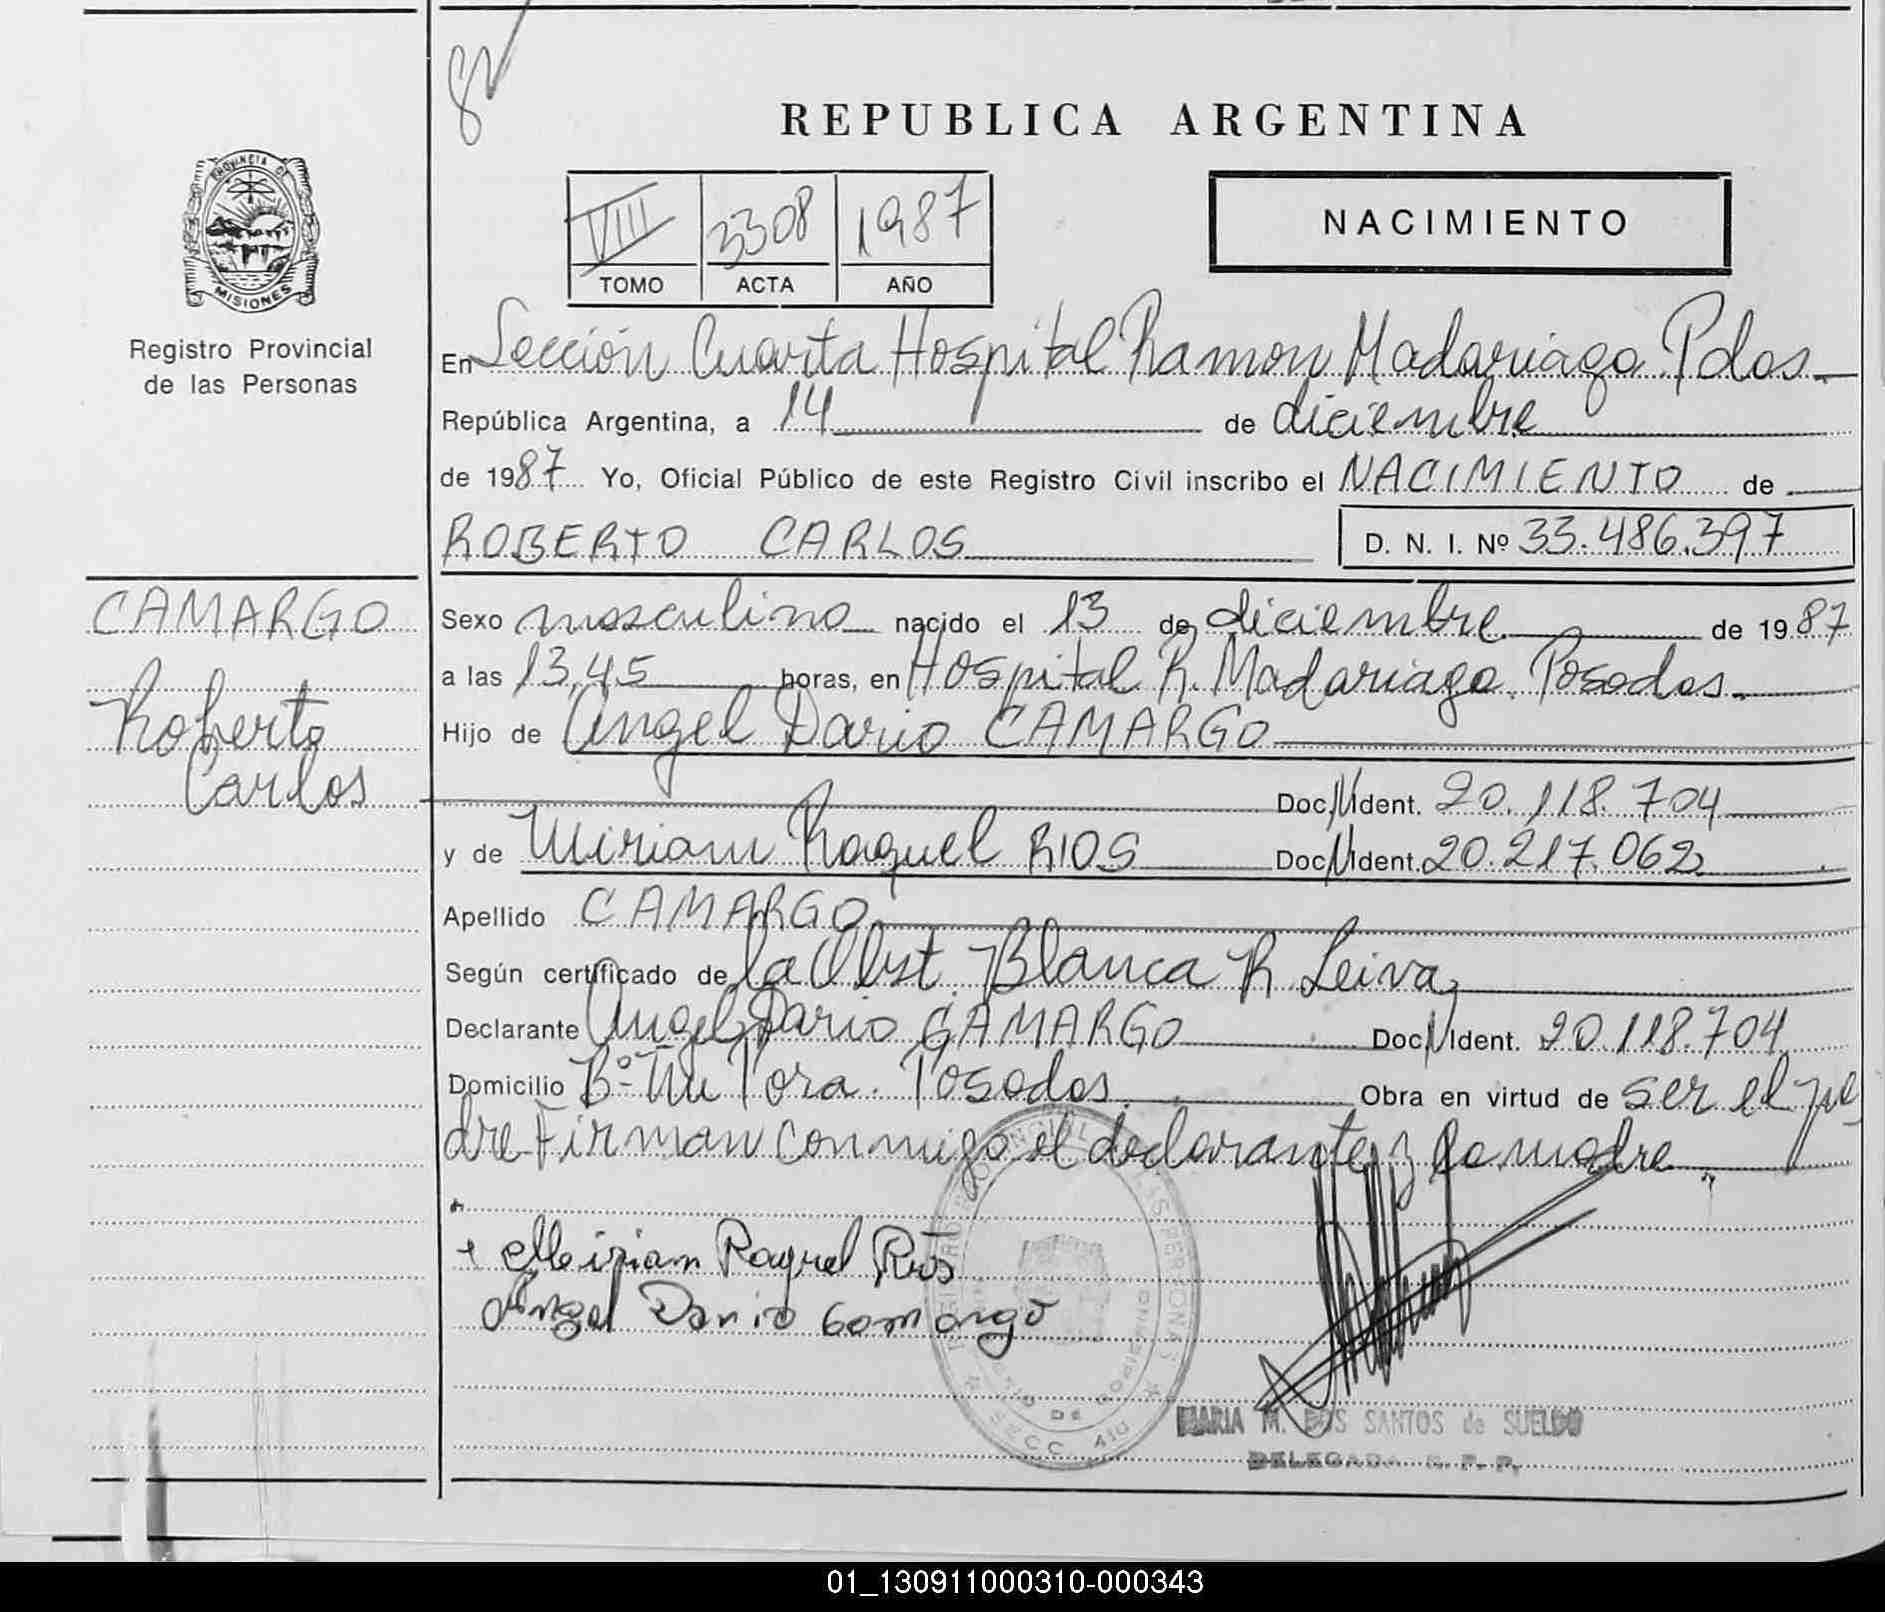 82
REPUBLICA ARGENTINA
PROVINCIA DE
MISIONES
Registro Provincial
de las Personas
VIII 3308 1987
TOMO ACTA AÑO
NACIMIENTO
En Sección Cuarta Hospital Ramon Madariaga Pdas.
República Argentina, a 14 de diciembre
de 1987 Yo, Oficial Público de este Registro Civil inscribo el NACIMIENTO de
ROBERTO CARLOS D. N. I. Nº 33.486.397
CAMARGO
Roberto
Carlos
Sexo masculino nacido el 13 de diciembre de 1987
a las 13,45 horas, en Hospital R. Madariaga. Posadas.
Hijo de Angel Dario CAMARGO
Doc. N Ident. 20.118.704
y de Miriam Raquel RIOS Doc. N Ident. 20.217.062
Apellido CAMARGO
Según certificado de la Obst. Blanca R Leiva
Declarante Angel Dario CAMARGO Doc. N Ident. 20.118.704
Domicilio Bº Posadas. Obra en virtud de ser el pa
dre Firman conmigo el declarante y la madre
+ Meiriam Raquel Rios
Angel Dario Camargo
MARIA M. DOS SANTOS de SUELDO
DELEGADA R. P. P.
01_130911000310-000343